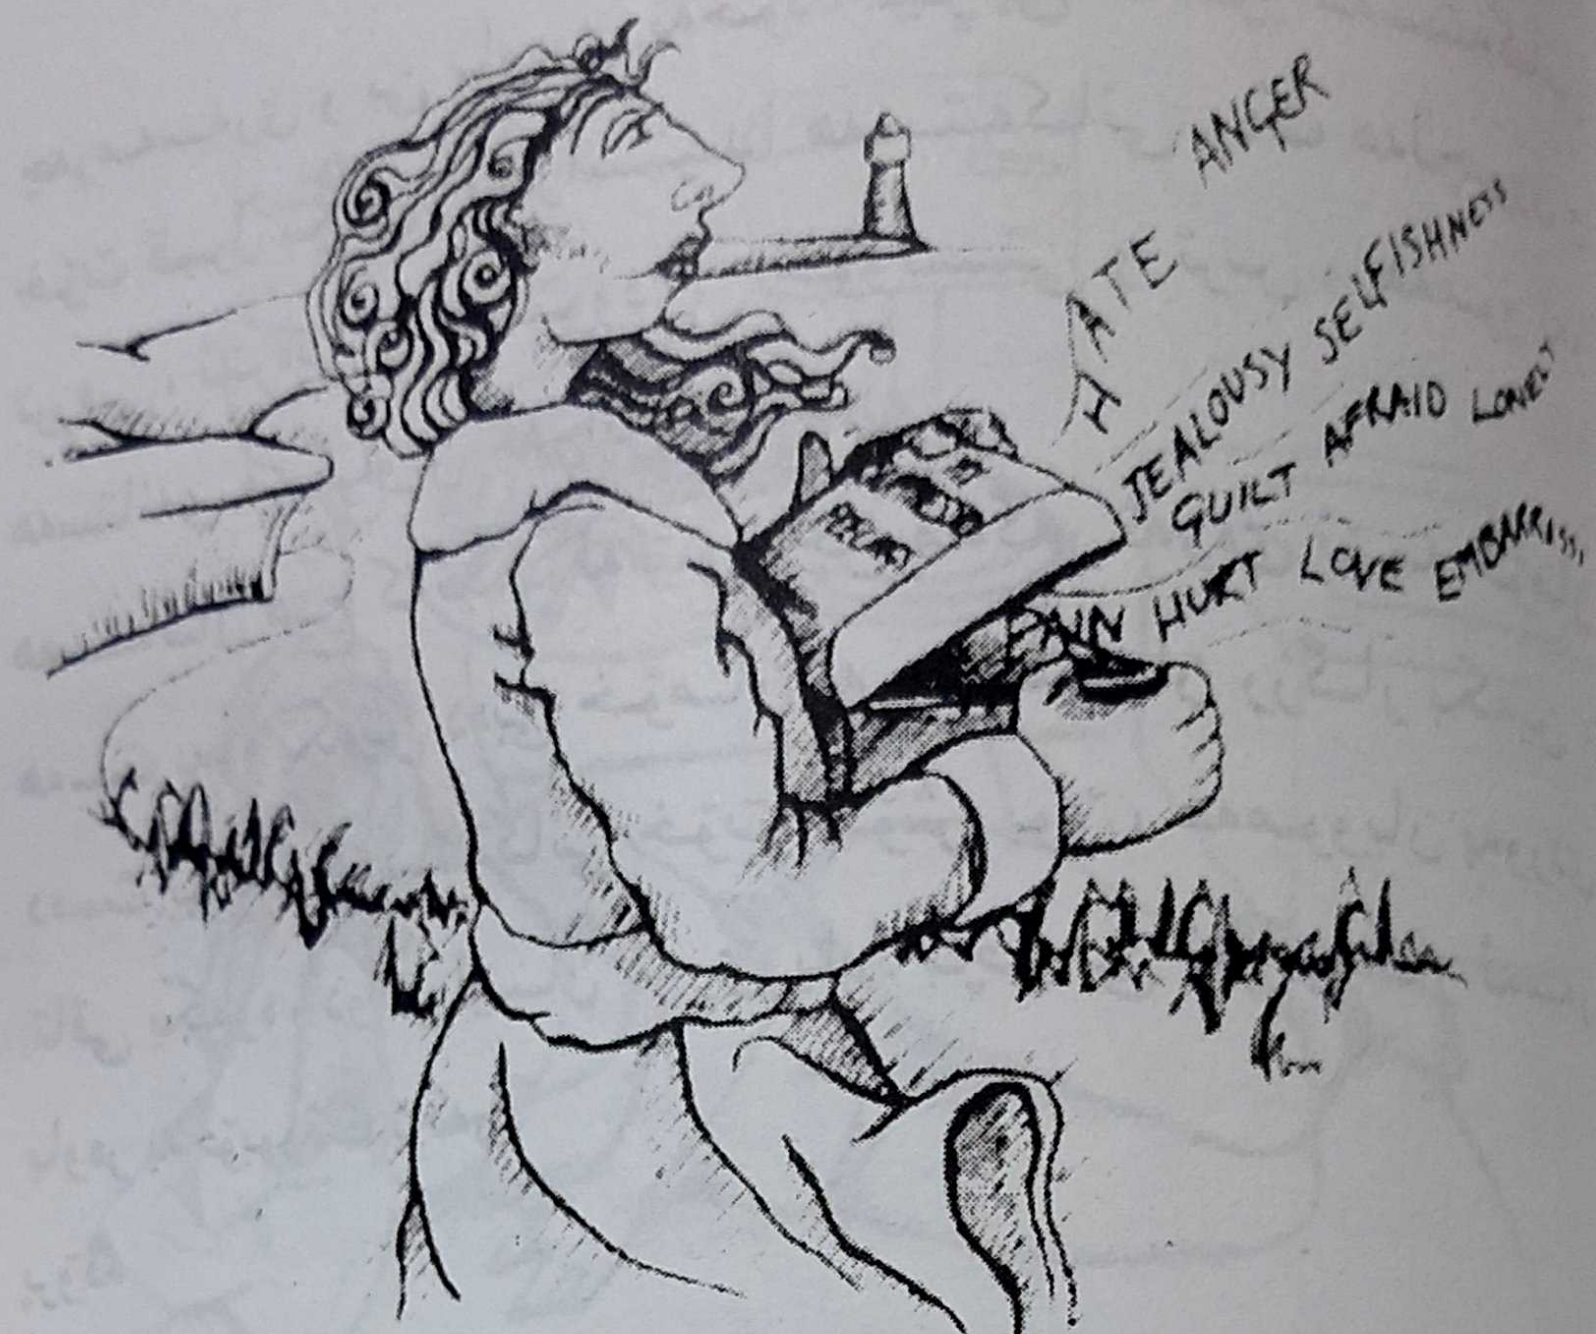 ANGER
HATE
JEALOUSY SELFISHNESS
GUILT AFRAID LONELY
PAIN HURT LOVE EMBARRISS